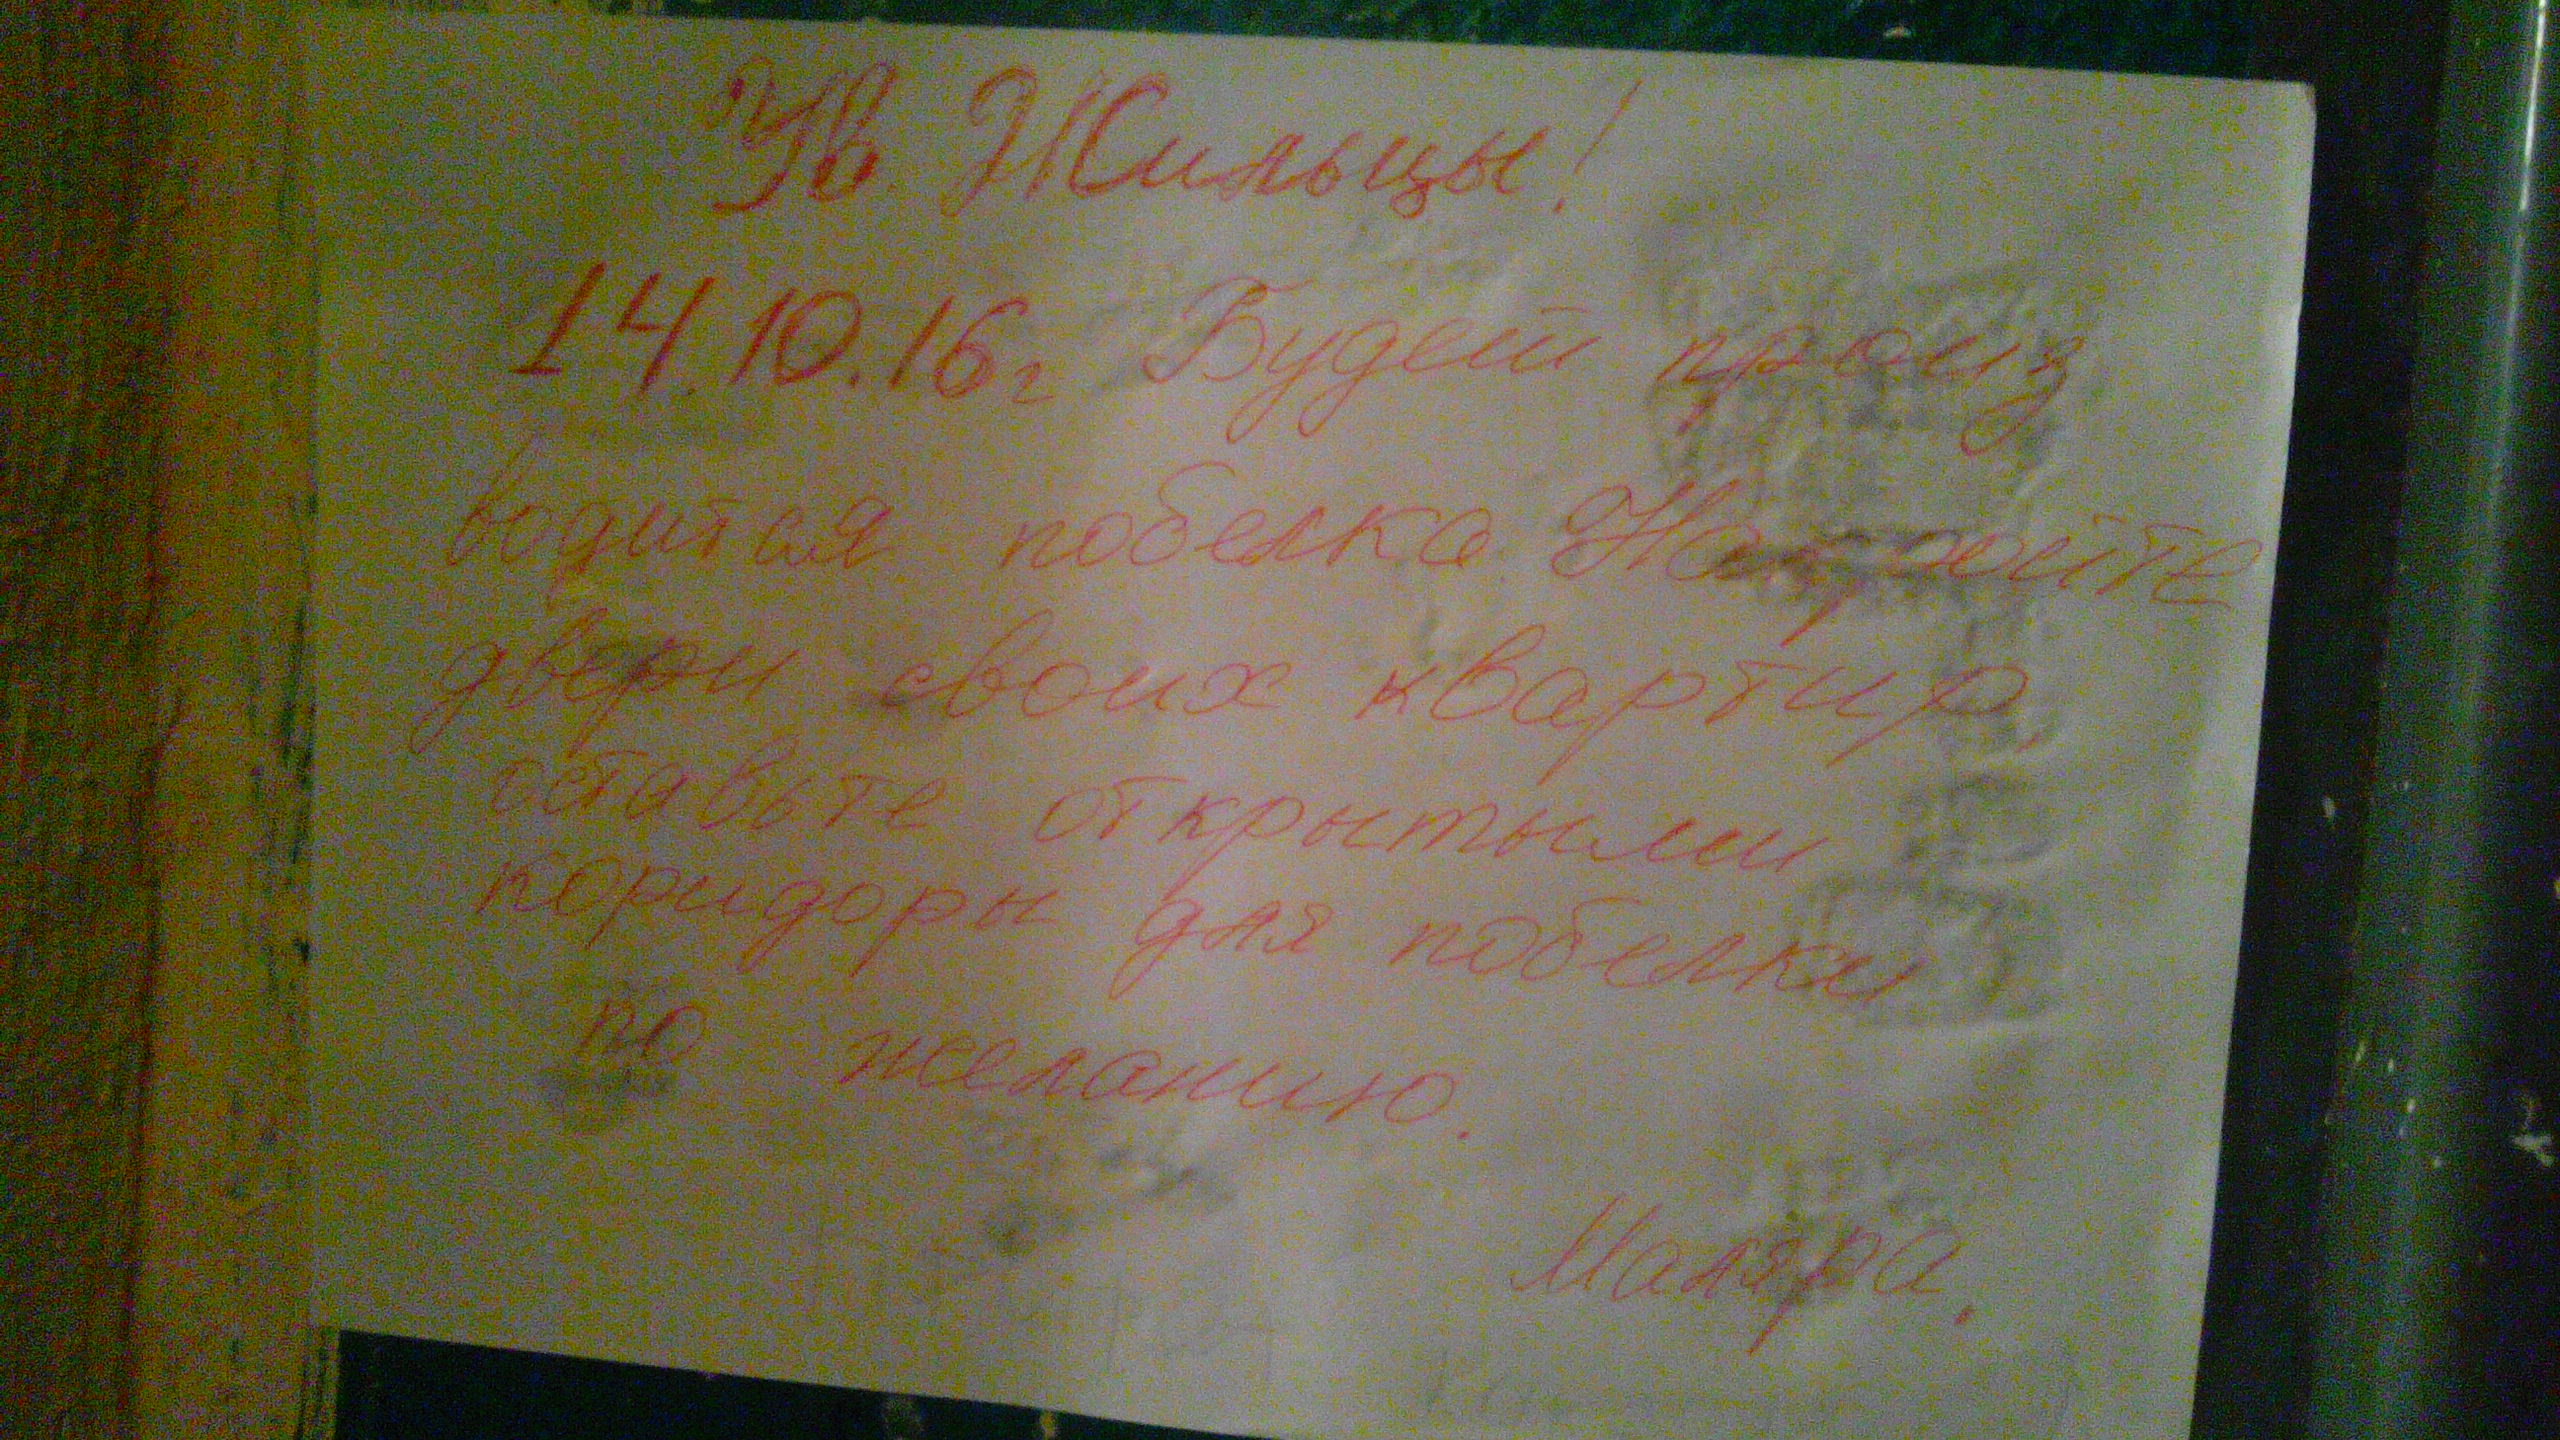 Ув. Жильцы!
14.10.16г Будет произ
водится побелка Накройте
двери своих квартир,
оставьте открытыми
коридоры для побелки
по желанию.
Маляра.